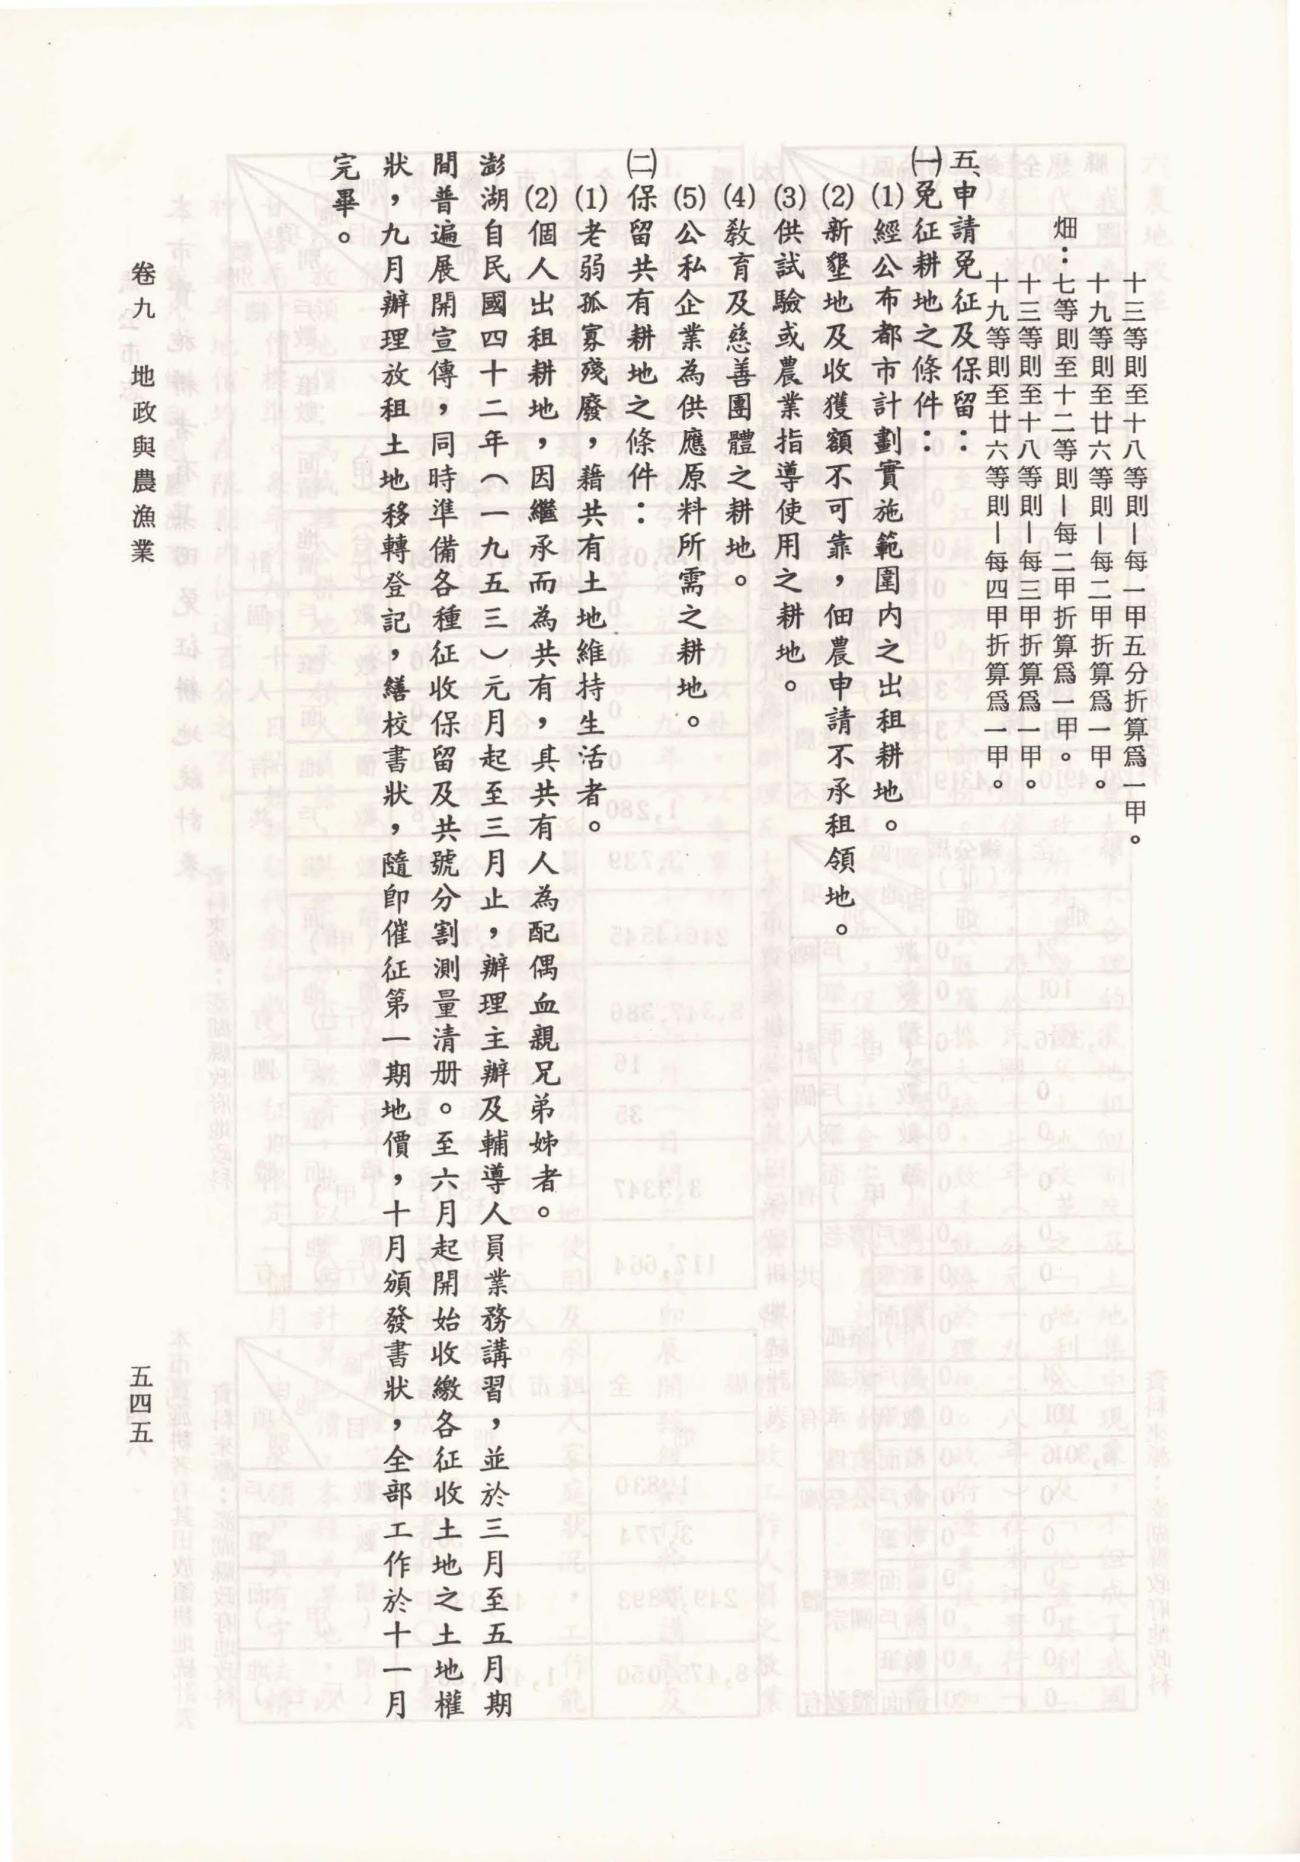 十三等則至十八等則—每一甲五分折算爲一甲。
十九等則至廿六等則—每二甲折算爲一甲。
畑：七等則至十二等則—每二甲折算爲一甲。
十三等則至十八等則—每三甲折算爲一甲。
十九等則至廿六等則—每四甲折算爲一甲。
五、申請免征及保留：
㈠免征耕地之條件：
⑴經公布都市計劃實施範圍內之出租耕地。
⑵新墾地及收獲額不可靠，佃農申請不承租領地。
⑶供試驗或農業指導使用之耕地。
⑷教育及慈善團體之耕地。
⑸公私企業為供應原料所需之耕地。
㈡保留共有耕地之條件：
⑴老弱孤寡殘廢，藉共有土地維持生活者。
⑵個人出租耕地，因繼承而為共有，其共有人為配偶血親兄弟姊者。
澎湖自民國四十二年（一九五三）元月起至三月止，辦理主辦及輔導人員業務講習，並於三月至五月期
間普遍展開宣傳，同時準備各種征收保留及共號分割測量清册。至六月起開始收繳各征收土地之土地權
狀，九月辦理放租土地移轉登記，繕校書狀，隨卽催征第一期地價，十月頒發書狀，全部工作於十一月
完畢。
卷九　地政與農漁業
五四五